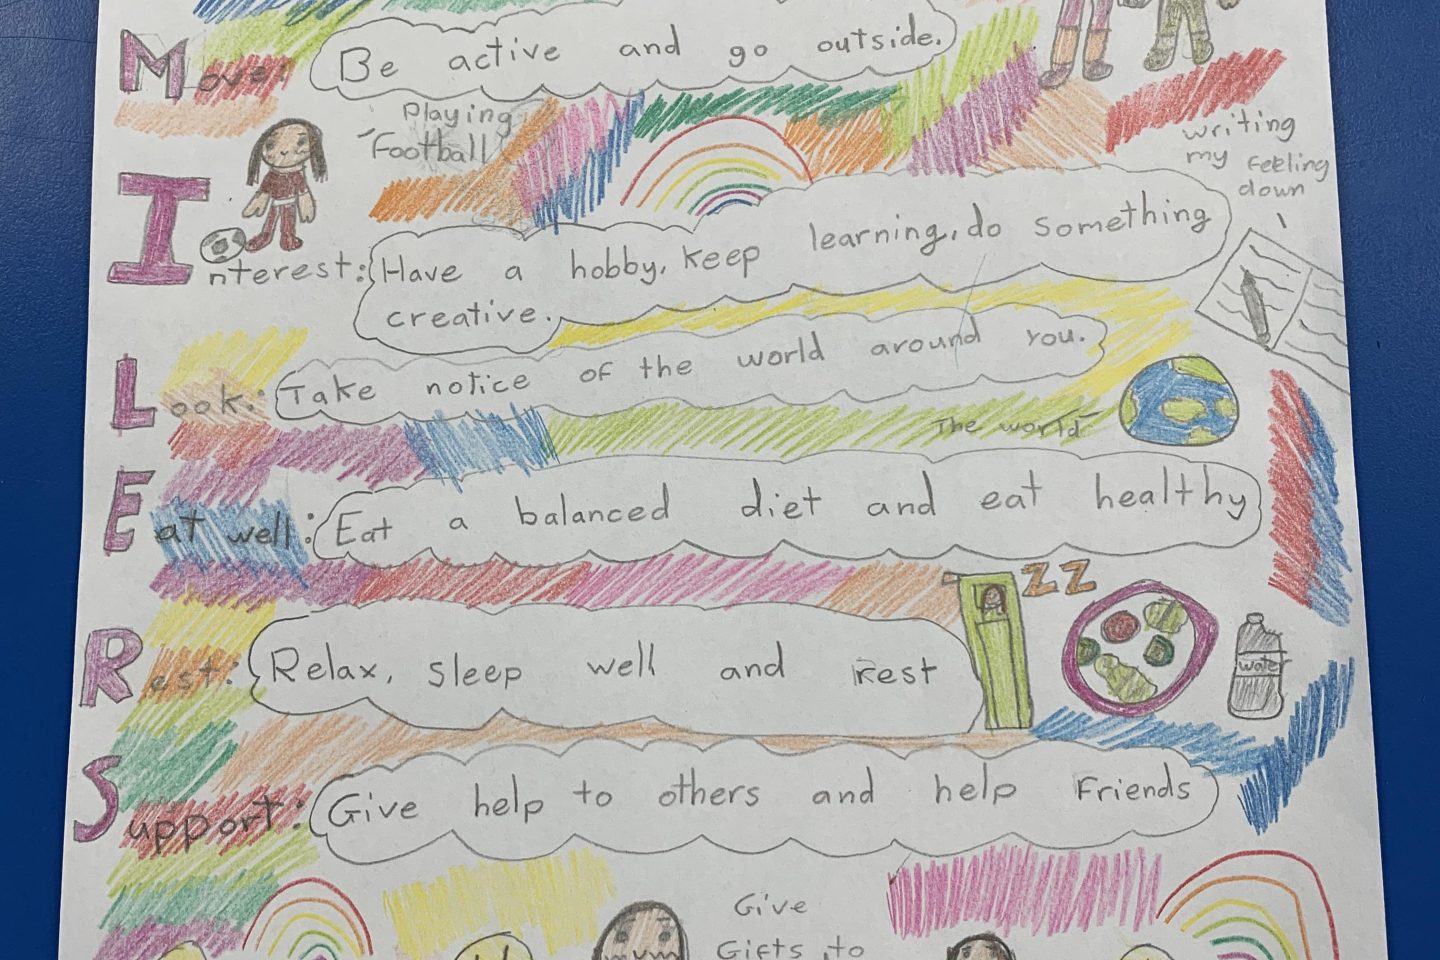 Move: Be active and go outside.
Playing
Football
writing
my feeling
down
Interest: Have a hobby, keep learning, do something
creative.
Look: Take notice of the world around you.
The world
Eat well: Eat a balanced diet and eat healthy
ZZ
Rest: Relax, sleep well and rest
water
Support: Give help to others and help Friends
Give
Gifts to